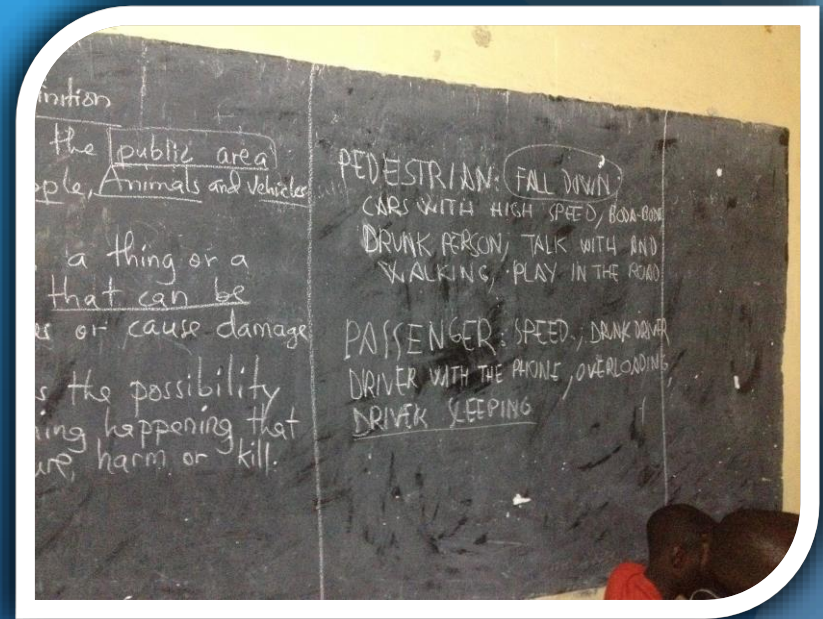 inition
the public area
ople, Animals and Vehicles
a thing or a
that can be
es or cause damage
s the possibility
ing happening that
ure, harm or kill.
PEDESTRIAN: FALL DOWN
CARS WITH HIGH SPEED, BODA-BODA
DRUNK PERSON, TALK WITH AND
WALKING, PLAY IN THE ROAD
PASSENGER: SPEED, DRUNK DRIVER
DRIVER WITH THE PHONE, OVERLOADING,
DRIVER SLEEPING